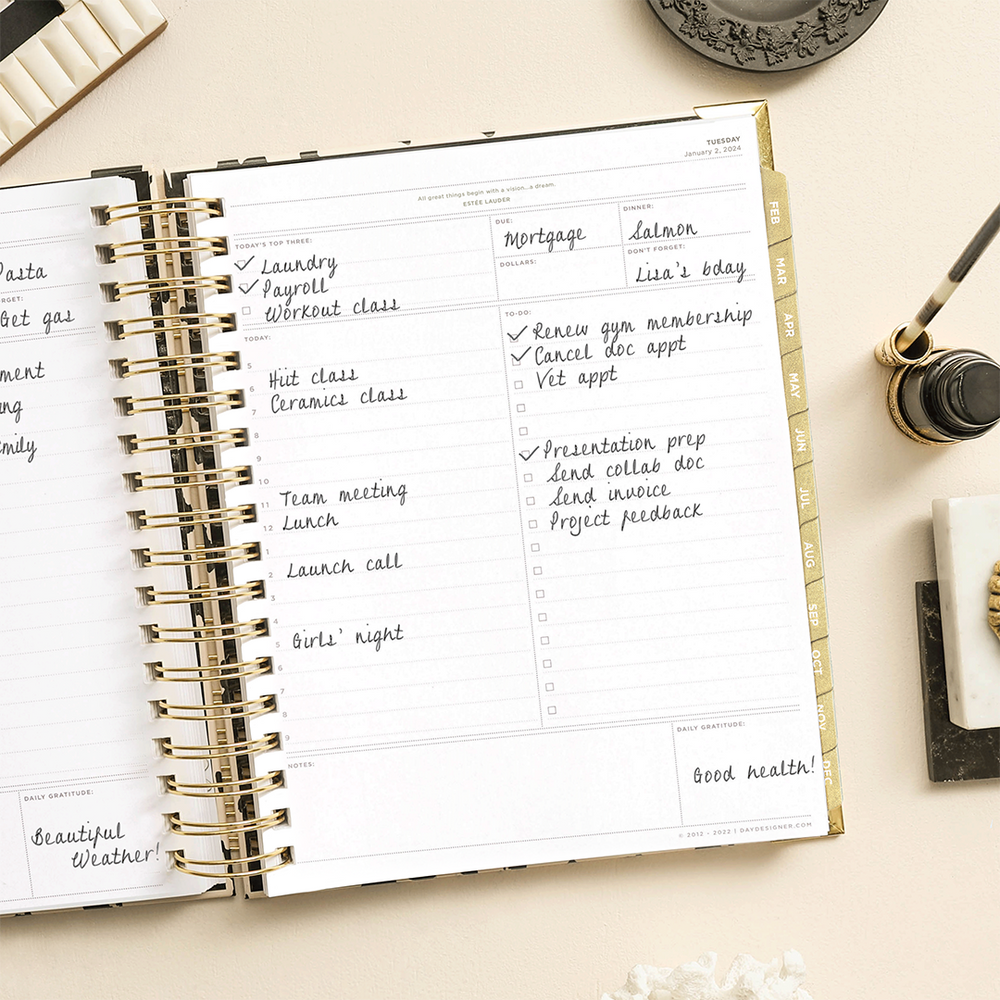 Pasta
Get gas
ment
mily
DAILY GRATITUDE:
Beautiful
Weather!
TUESDAY
January 2, 2024
All great things begin with a vision...a dream.
ESTÉE LAUDER
TODAY'S TOP THREE:
Laundry
Payroll
Workout class
DUE:
Mortgage
DINNER:
Salmon
DOLLARS:
DON'T FORGET:
Lisa's bday
TODAY:
5 Hiit class
6 Ceramics class
7
8
9
10
11 Team meeting
12 Lunch
1
2 Launch call
3
4
5 Girls' night
6
7
8
9
TO-DO:
Renew gym membership
Cancel doc appt
Vet appt
Presentation prep
Send collab doc
Send invoice
Project feedback
NOTES:
DAILY GRATITUDE:
Good health!
© 2012 - 2022 | DAYDESIGNER.COM
FEB
MAR
APR
MAY
JUN
JUL
AUG
SEP
OCT
NOV
DEC